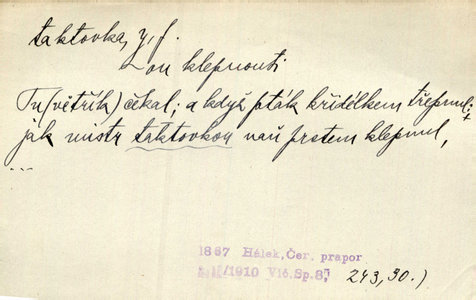 taktovka, y, f.
~ou klepnouti
Tu (větřík) čekal; a když pták křidélkem třepnul,
jak mistr taktovkou naň prstem klepnul,
...
1867 Hálek, Čer. prapor
/1910 Vič. Sp. 8, 243, 30.)